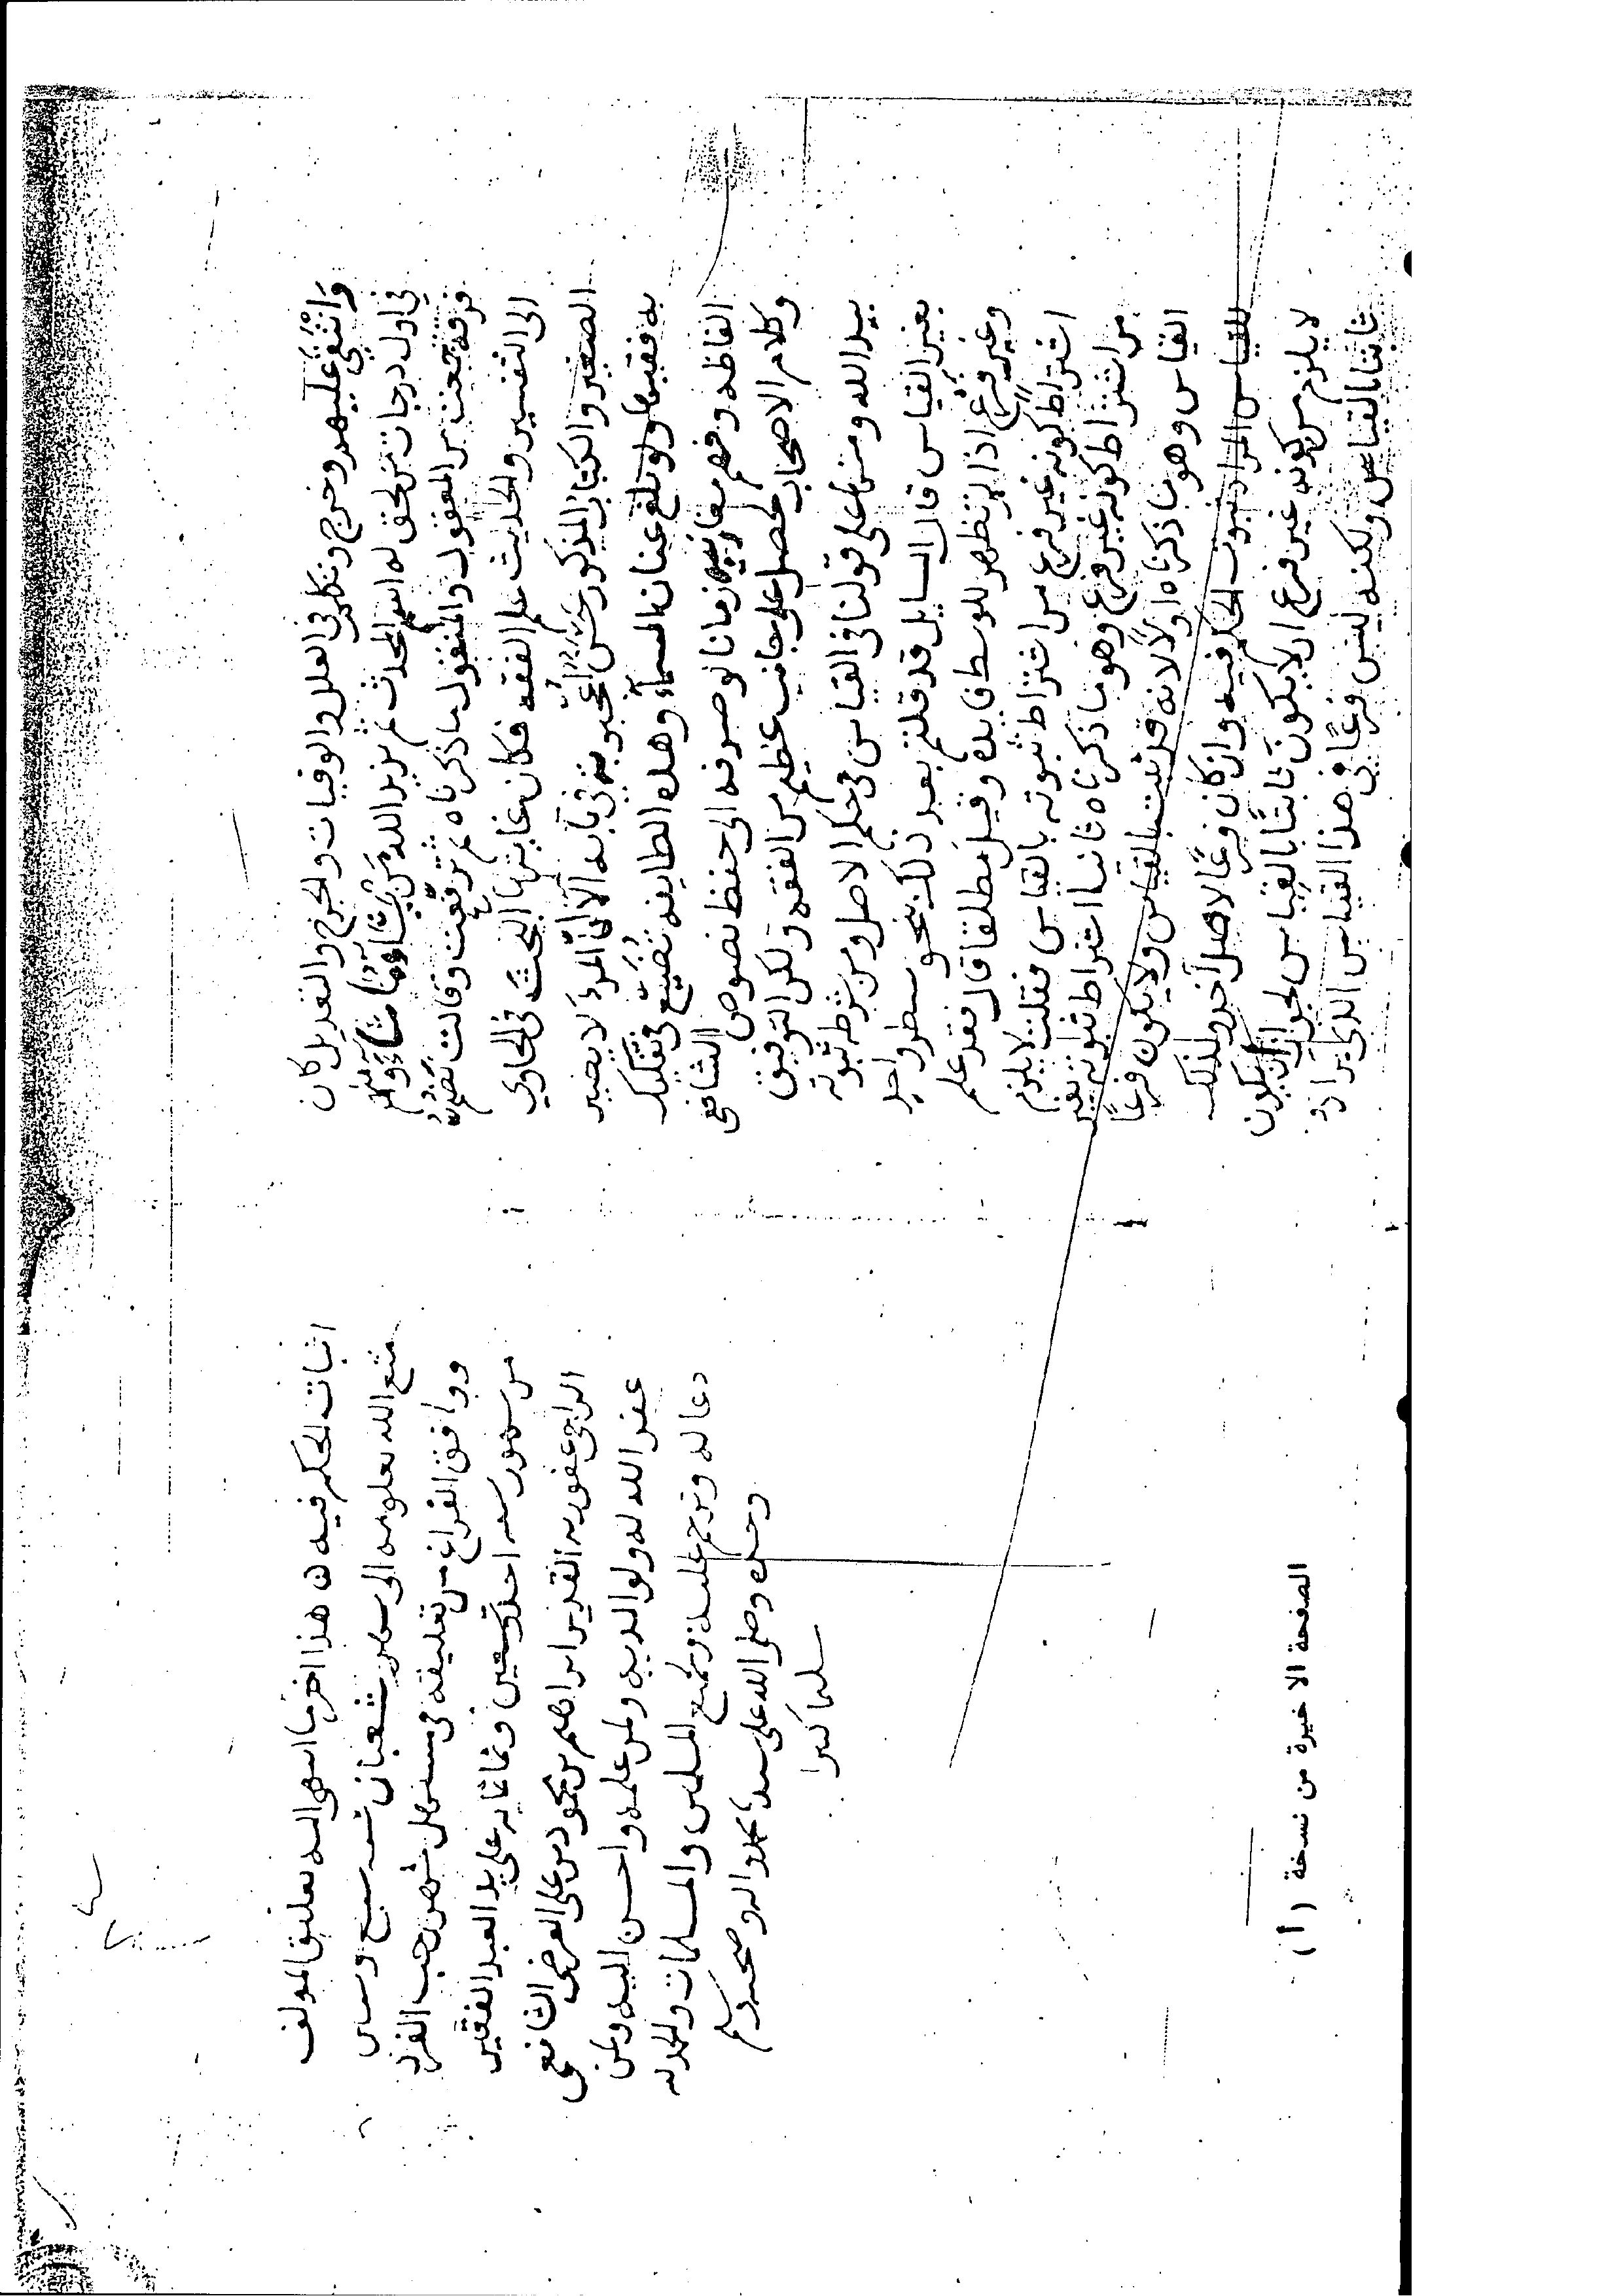 وانتقى عليهم وخرج وتكلم في العلل والوفيات والجرح والتعديل كان
في اول درجات من يحق له اسم المحدث ثم يزيد الله من يشا ما شا
فرقة جمعت من المعقول والمنقول ما ذكرناه ثم ترفعت وقالت نضم
الى التفسير والحديث علم الفقه فكان غايتها البحث في الحاوي
الصغير والكتاب المذكور اعجوبة في بابه الا ان المرء لا يصير
به فقيها ولو بلغ عنان السماء وهذه الطايفة تضيع في تفكيك
الفاظه وفهم معانيه زمانا لو صرفه الى حفظ نصوص الشافعي
وكلام الاصحاب لحصل على جانب عظيم من الفقه ولكن التوفيق
بيد الله ومنها على قولنا في القياس في حكم الاصل ومن شرطه ثبوته
بغير القياس قال السايل قد قلتم بعد ذلك بنحو سطر واحد
وغير فرع اذا لم تظهر للوسط فايدة وقيل مطلقا قال فقد علم
اشتراط كونه غير فرع من اشتراط ثبوته بالقياس فقلت لا يلزم
من اشتراط كونه غير فرع وهو ما ذكرناه ثانيا اشتراط ثبوته بغير
القياس وهو ما ذكرناه اولا لانه قد يثبت بالقياس ولا يكون فرعا
للقياس المراد ثبوت الحكم فيه وان كان فرعا لاصل اخر وكذلك
لا يلزم من كونه غير فرع ان لا يكون ثابتا بالقياس لجواز ان يكون
ثابتا بالقياس ولكنه ليس فرعا في هذا القياس الذي يراد
اثبات الحكم فيه هذا اخر ما انتهى اليه تعليق المولف
متع الله بعلومه الى شعبان سنه سبع وستين
ووافق الفراغ من تعليقه في مستهل شهر رجب الفرد
من شهور سنه احد وتسعين وثمانمايه على يد العبد الفقير
الراجي عفو ربه القدير ابراهيم بن محمود بن على العرضى الشافعى
غفر الله له ولوالديه ولمن علمه واحسن اليه ولمن
دعا له وترحم عليه ولجميع المسلمين والمسلمات والحمد لله
وحده وصلى الله على سيدنا محمد واله وصحبه وسلم
تسليما كثيرا
الصفحة الاخيرة من نسخة (أ)